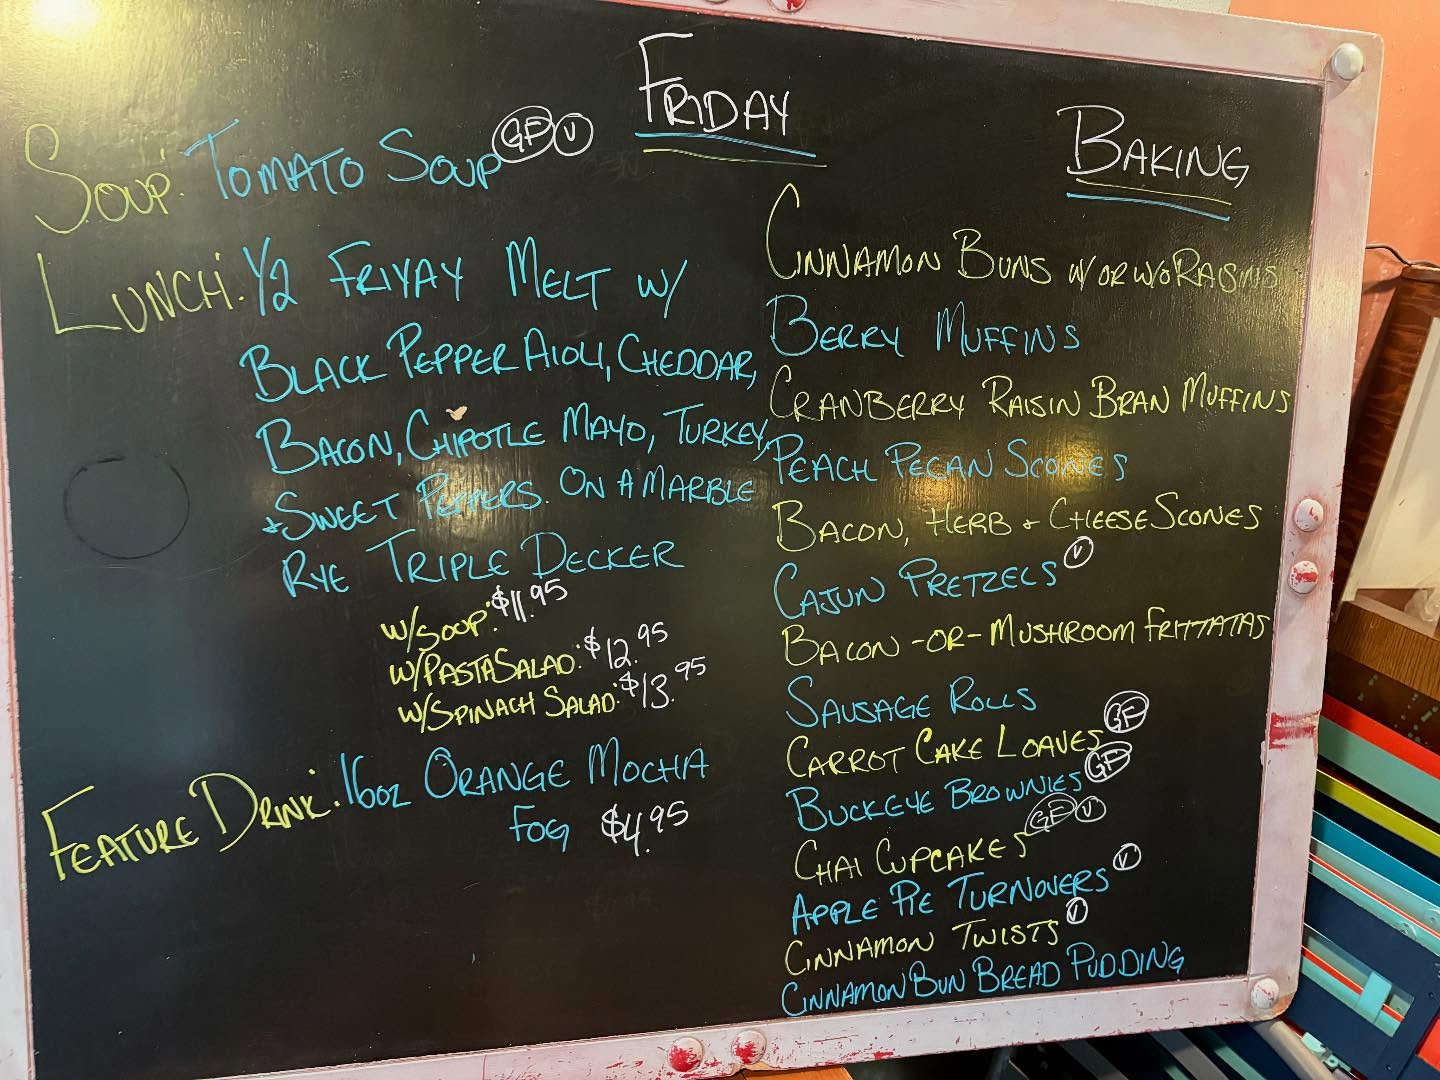 Friday
Soup: Tomato Soup GF V
Lunch: 1/2 Friyay Melt w/
Black Pepper Aioli, Cheddar,
Bacon, Chipotle Mayo, Turkey,
+ Sweet Peppers. On a Marble
Rye Triple Decker
w/Soup: $11.95
w/Pasta Salad: $12.95
w/Spinach Salad: $13.95
Feature Drink: 16oz Orange Mocha
Fog $4.95
Baking
Cinnamon Buns w/ or w/o Raisins
Berry Muffins
Cranberry Raisin Bran Muffins
Peach Pecan Scones
Bacon, Herb + Cheese Scones
Cajun Pretzels V
Bacon -or- Mushroom Frittatas
Sausage Rolls
Carrot Cake Loaves GF
Buckeye Brownies GF
Chai Cupcakes GF V
Apple Pie Turnovers V
Cinnamon Twists V
Cinnamon Bun Bread Pudding